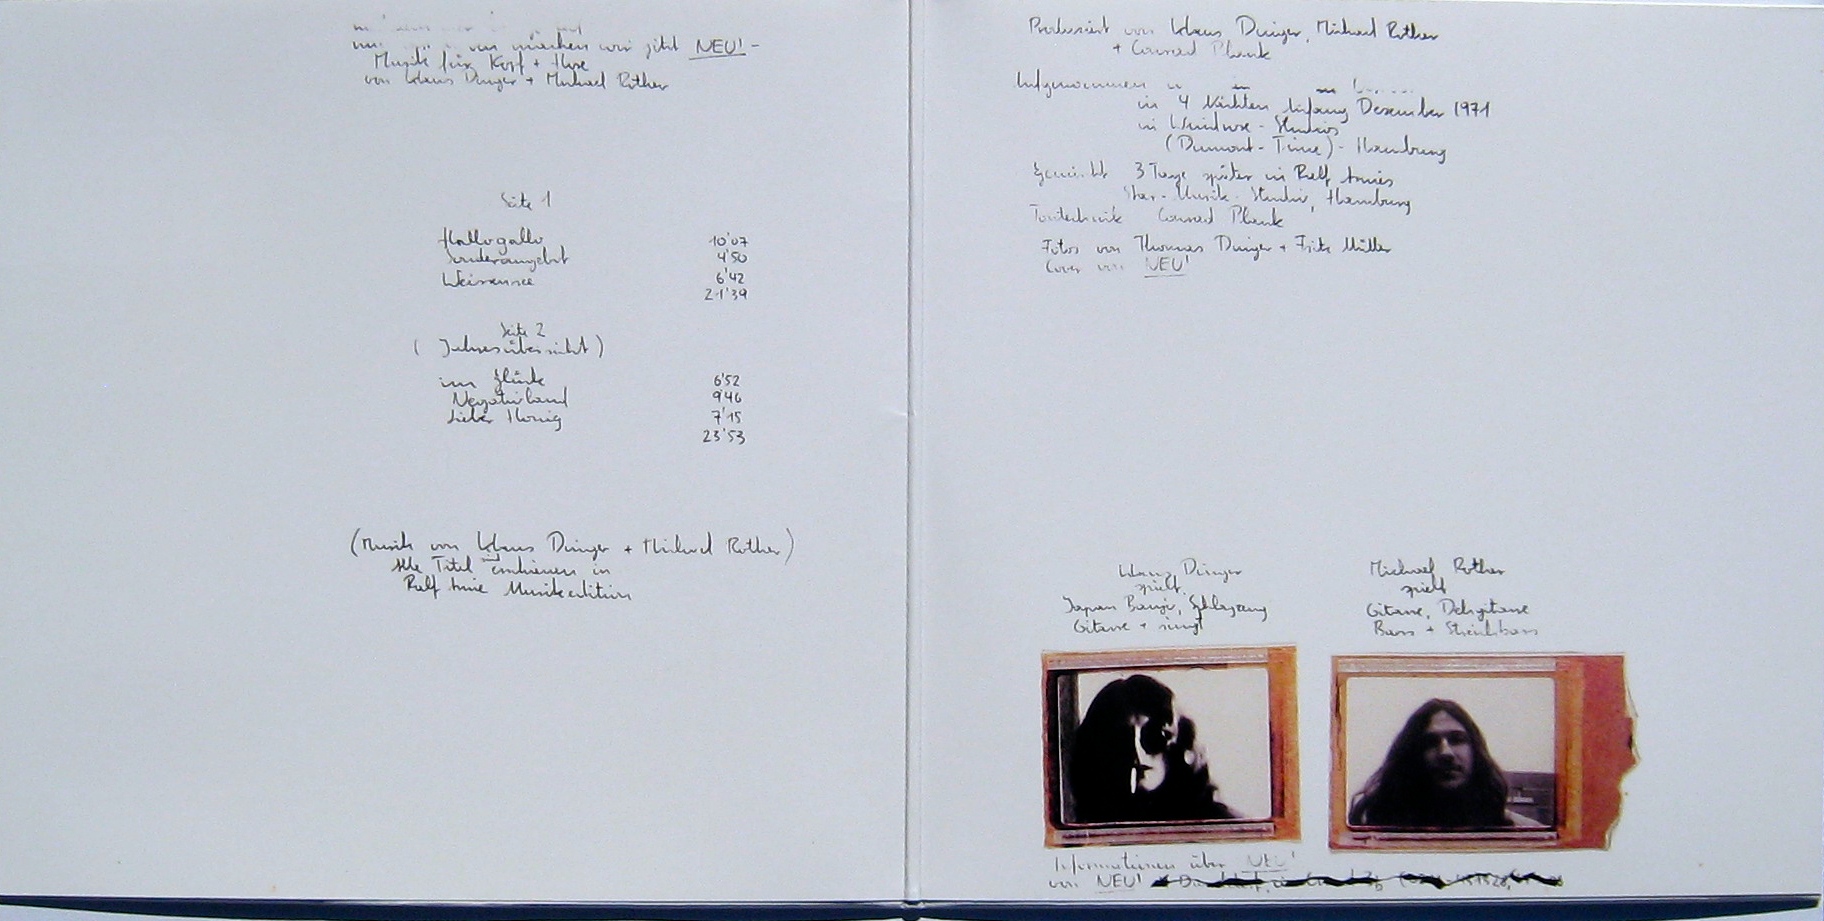 machen wir jetzt NEU! -
Musik für Kopf + Hose
von Klaus Dinger + Michael Rother
Seite 1
Hallogallo 10'07
Sonderangebot 4'50
Weissensee 6'42
21'39
Seite 2
(Jahresübersicht)
im Glück 6'52
Negativland 9'46
Lieber Honig 7'15
23'53
(Musik von Klaus Dinger + Michael Rother)
Alle Titel sind erschienen in
Ralf Arnie Musikedition
Produziert von Klaus Dinger, Michael Rother
+ Conrad Plank
Aufgenommen
in 4 Nächten Anfang Dezember 1971
in Windrose-Studios
(Dumont-Time)-Hamburg
Gemischt 3 Tage später in Ralf Arnies
Star-Musik-Studio, Hamburg
Tontechnik Conrad Plank
Fotos von Thomas Dinger + Fritz Müller
Cover von NEU!
Klaus Dinger
spielt
Japan Banjo, Schlagzeug
Gitarre + singt
Michael Rother
spielt
Gitarre, Dehgitarre
Bass + Streichbass
Informationen über NEU!
von NEU!